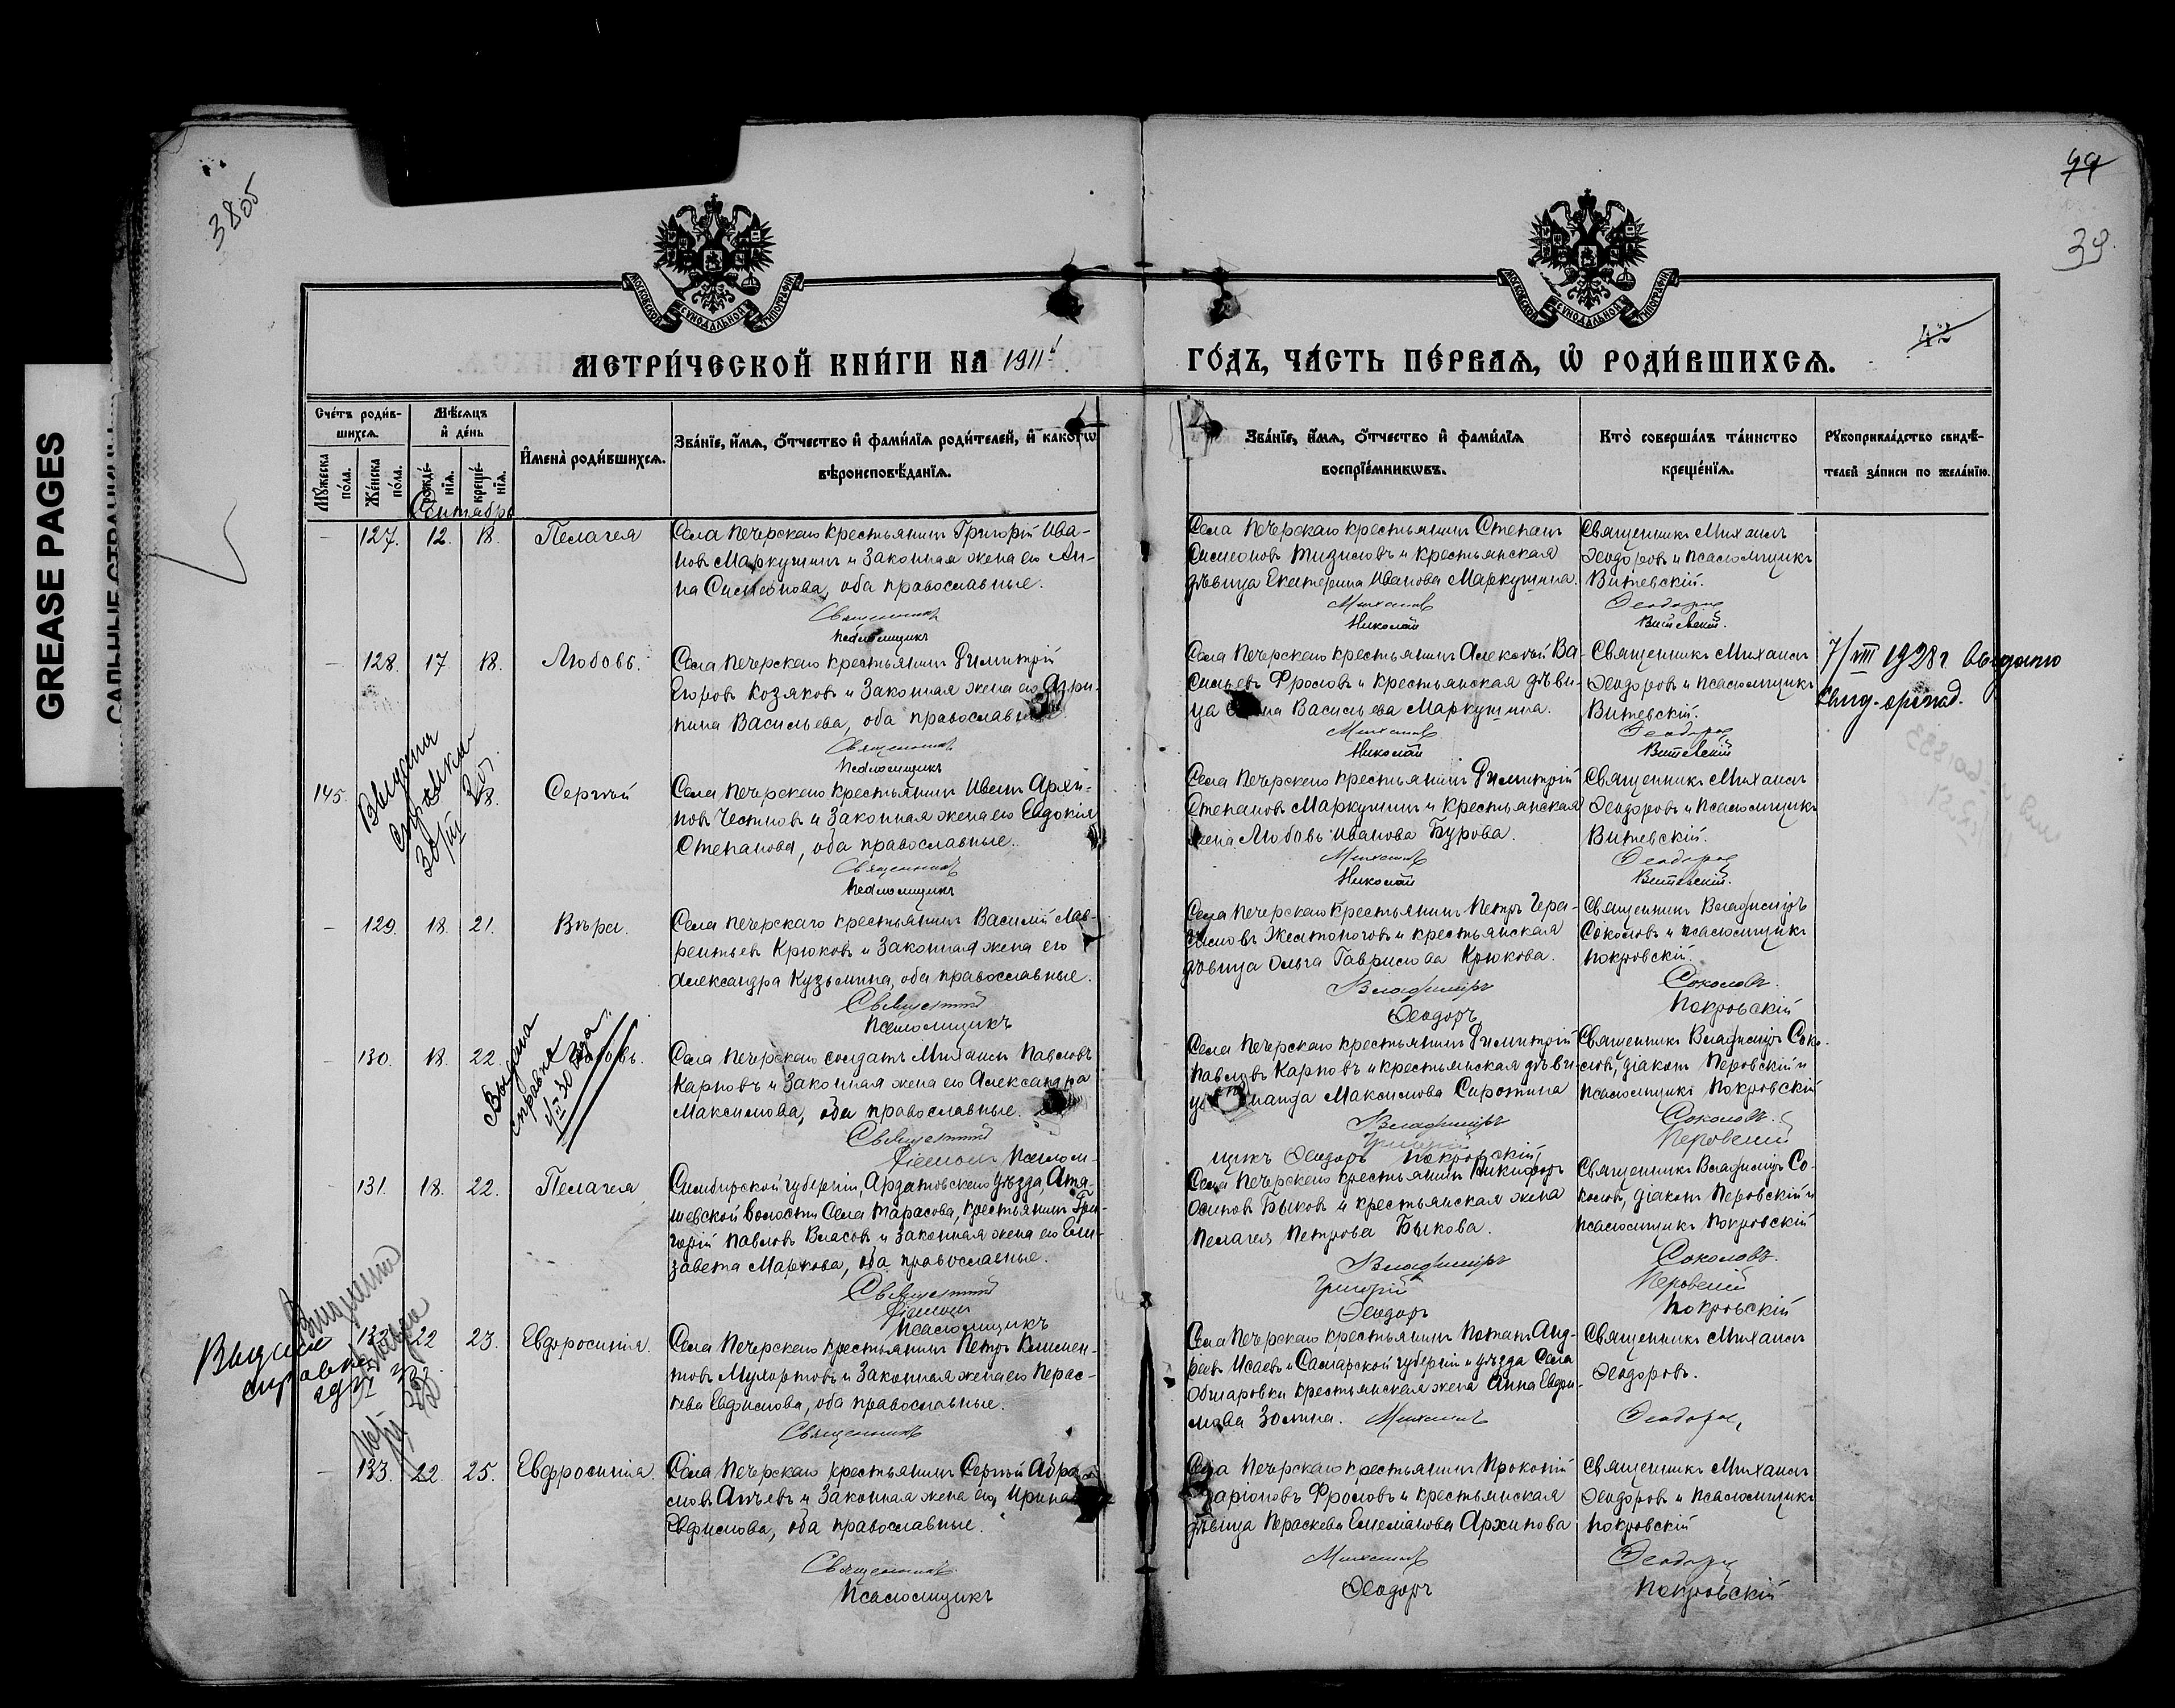 GREASE PAGES
3805
44
39
42
МОСКОВСКОЙ СѴНОДАЛЬНОЙ ТИПОГРАФІИ
МОСКОВСКОЙ СѴНОДАЛЬНОЙ ТИПОГРАФІИ
МЕТРИ́ЧЕСКОЙ КНИ́ГИ НА 1911й
ГО́ДЪ, ЧА́СТЬ ПЕ́РВАѦ, Ѡ҆ РОДИ́ВШИХСѦ.
Сче́тъ роди́в-
шихсѧ.
Мꙋ́жеска по́ла.
Же́нска по́ла.
Мѣ́сѧцъ
и҆ де́нь
рожде́-
нїѧ.
креще́-
нїѧ.
И҆мена̀ роди́вшихсѧ.
Зва́нїе, и҆́мѧ, ѻ҆́тчество и҆ фами́лїѧ роди́телей, и҆ како́гѡ
вѣроисповѣ́данїѧ.
Зва́нїе, и҆́мѧ, ѻ҆́тчество и҆ фами́лїѧ
воспрїе́мникѡвъ.
Кто̀ соверша́лъ та́инство
креще́нїѧ.
Рꙋкоприкла́дство свидѣ́-
телей за́писи по жела́нїю.
Сентябрь
127. 12. 18. Пелагея
Села Печерскаго крестьянинъ Григорій Ива-
новъ Маркушинъ и законная жена его Ан-
на Симеонова, оба православные.
Священникъ
Псаломщикъ
Села Печерскаго крестьянинъ Степанъ
Симеоновъ и крестьянская
дѣвица Екатерина Иванова Маркушина.
Михаилъ
Николай
Священникъ Михаилъ
Ѳеодоровъ и псаломщикъ
Витевскій.
Ѳеодоровъ
Витевскій.
128. 17. 18. Любовь.
Села Печерскаго крестьянинъ Димитрій
Егоровъ Козяковъ и законная жена его Агри-
пина Васильева, оба православные.
Священникъ
Псаломщикъ
Села Печерскаго крестьянинъ Алексѣй Ва-
сильевъ Фроловъ и крестьянская дѣви-
ца Васильева Маркушина.
Михаилъ
Николай
Священникъ Михаилъ
Ѳеодоровъ и псаломщикъ
Витевскій.
Ѳеодоровъ
Витевскій
7/VIII 1928 г выдано
Выдана
справка
30/III 30 г.
145. 18. Сергѣй
Села Печерскаго крестьянинъ Иванъ Архи-
повъ Честновъ и законная жена его Евдокія
Степанова, оба православные.
Священникъ
Псаломщикъ
Села Печерскаго крестьянинъ Димитрій
Степановъ Маркушинъ и крестьянская
жена Любовь Иванова Бурова.
Михаилъ
Николай
Священникъ Михаилъ
Ѳеодоровъ и псаломщикъ
Витевскій.
Ѳеодоровъ
Витевскій.
129. 18. 21. Вѣра.
Села Печерскаго крестьянинъ Василій Лав-
рентьевъ Крюковъ и законная жена его
Александра Кузьмина, оба православные.
Священникъ
Псаломщикъ
Села Печерскаго крестьянинъ Петръ Гера-
симовъ Желтоноговъ и крестьянская
дѣвица Ольга Гаврилова Крюкова.
Владиміръ
Ѳеодоръ
Священникъ Владиміръ
Соколовъ и псаломщикъ
Покровскій.
Соколовъ.
Покровскій
Выдана
справка
30 года
130. 18. 22. Любовь.
Села Печерскаго солдатъ Михаилъ Павловъ
Карповъ и законная жена его Александра
Максимова, оба православные.
Священникъ
Діаконъ Псалом-
Села Печерскаго крестьянинъ Димитрій
Павловъ Карповъ и крестьянская дѣви-
ца Максимова Сиротина
Владиміръ
Григорій
щикъ Ѳеодоръ Покровскій
Священникъ Владиміръ Соко-
ловъ, діаконъ Перовскій и
псаломщикъ Покровскій
Соколовъ.
Перовскій
131. 18. 22. Пелагея
Симбирской губерніи, Ардатовскаго уѣзда, Атя-
шевской волости села Тарасова, крестьянинъ Гри-
горій Павловъ Власовъ и законная жена его Ели-
завета Маркова, оба православные.
Священникъ
Діаконъ
Псаломщикъ
Села Печерскаго крестьянинъ Никифоръ
Осиповъ Быковъ и крестьянская жена
Пелагея Петрова Быкова.
Владиміръ
Григорій
Ѳеодоръ
Священникъ Владиміръ Со-
коловъ, діаконъ Перовскій и
псаломщикъ Покровскій
Соколовъ.
Перовскій
Покровскій
Выдана
справка
132. 22 23. Евфросинія.
Села Печерскаго крестьянинъ Петръ Климен-
товъ Мулюртовъ и законная жена его Парас-
кева Евфимова, оба православные.
Священникъ
Села Печерскаго крестьянинъ Потапъ Анд-
реевъ Исаевъ и Самарской губерніи и уѣзда села
Обшаровки крестьянская жена Анна Евфи-
мова Зомина. Михаилъ
Священникъ Михаилъ
Ѳеодоровъ.
Ѳеодоровъ,
133. 22. 25. Евфросинія.
Села Печерскаго крестьянинъ Сергѣй Абра-
мовъ и законная жена его Ирина
Евфимова, оба православные.
Священникъ
Псаломщикъ
Села Печерскаго крестьянинъ Прокопій
Фроловъ и крестьянская
дѣвица Параскева Емеліанова Архипова
Михаилъ
Ѳеодоръ
Священникъ Михаилъ
Ѳеодоровъ и псаломщикъ
Покровскій
Ѳеодоровъ
Покровскій